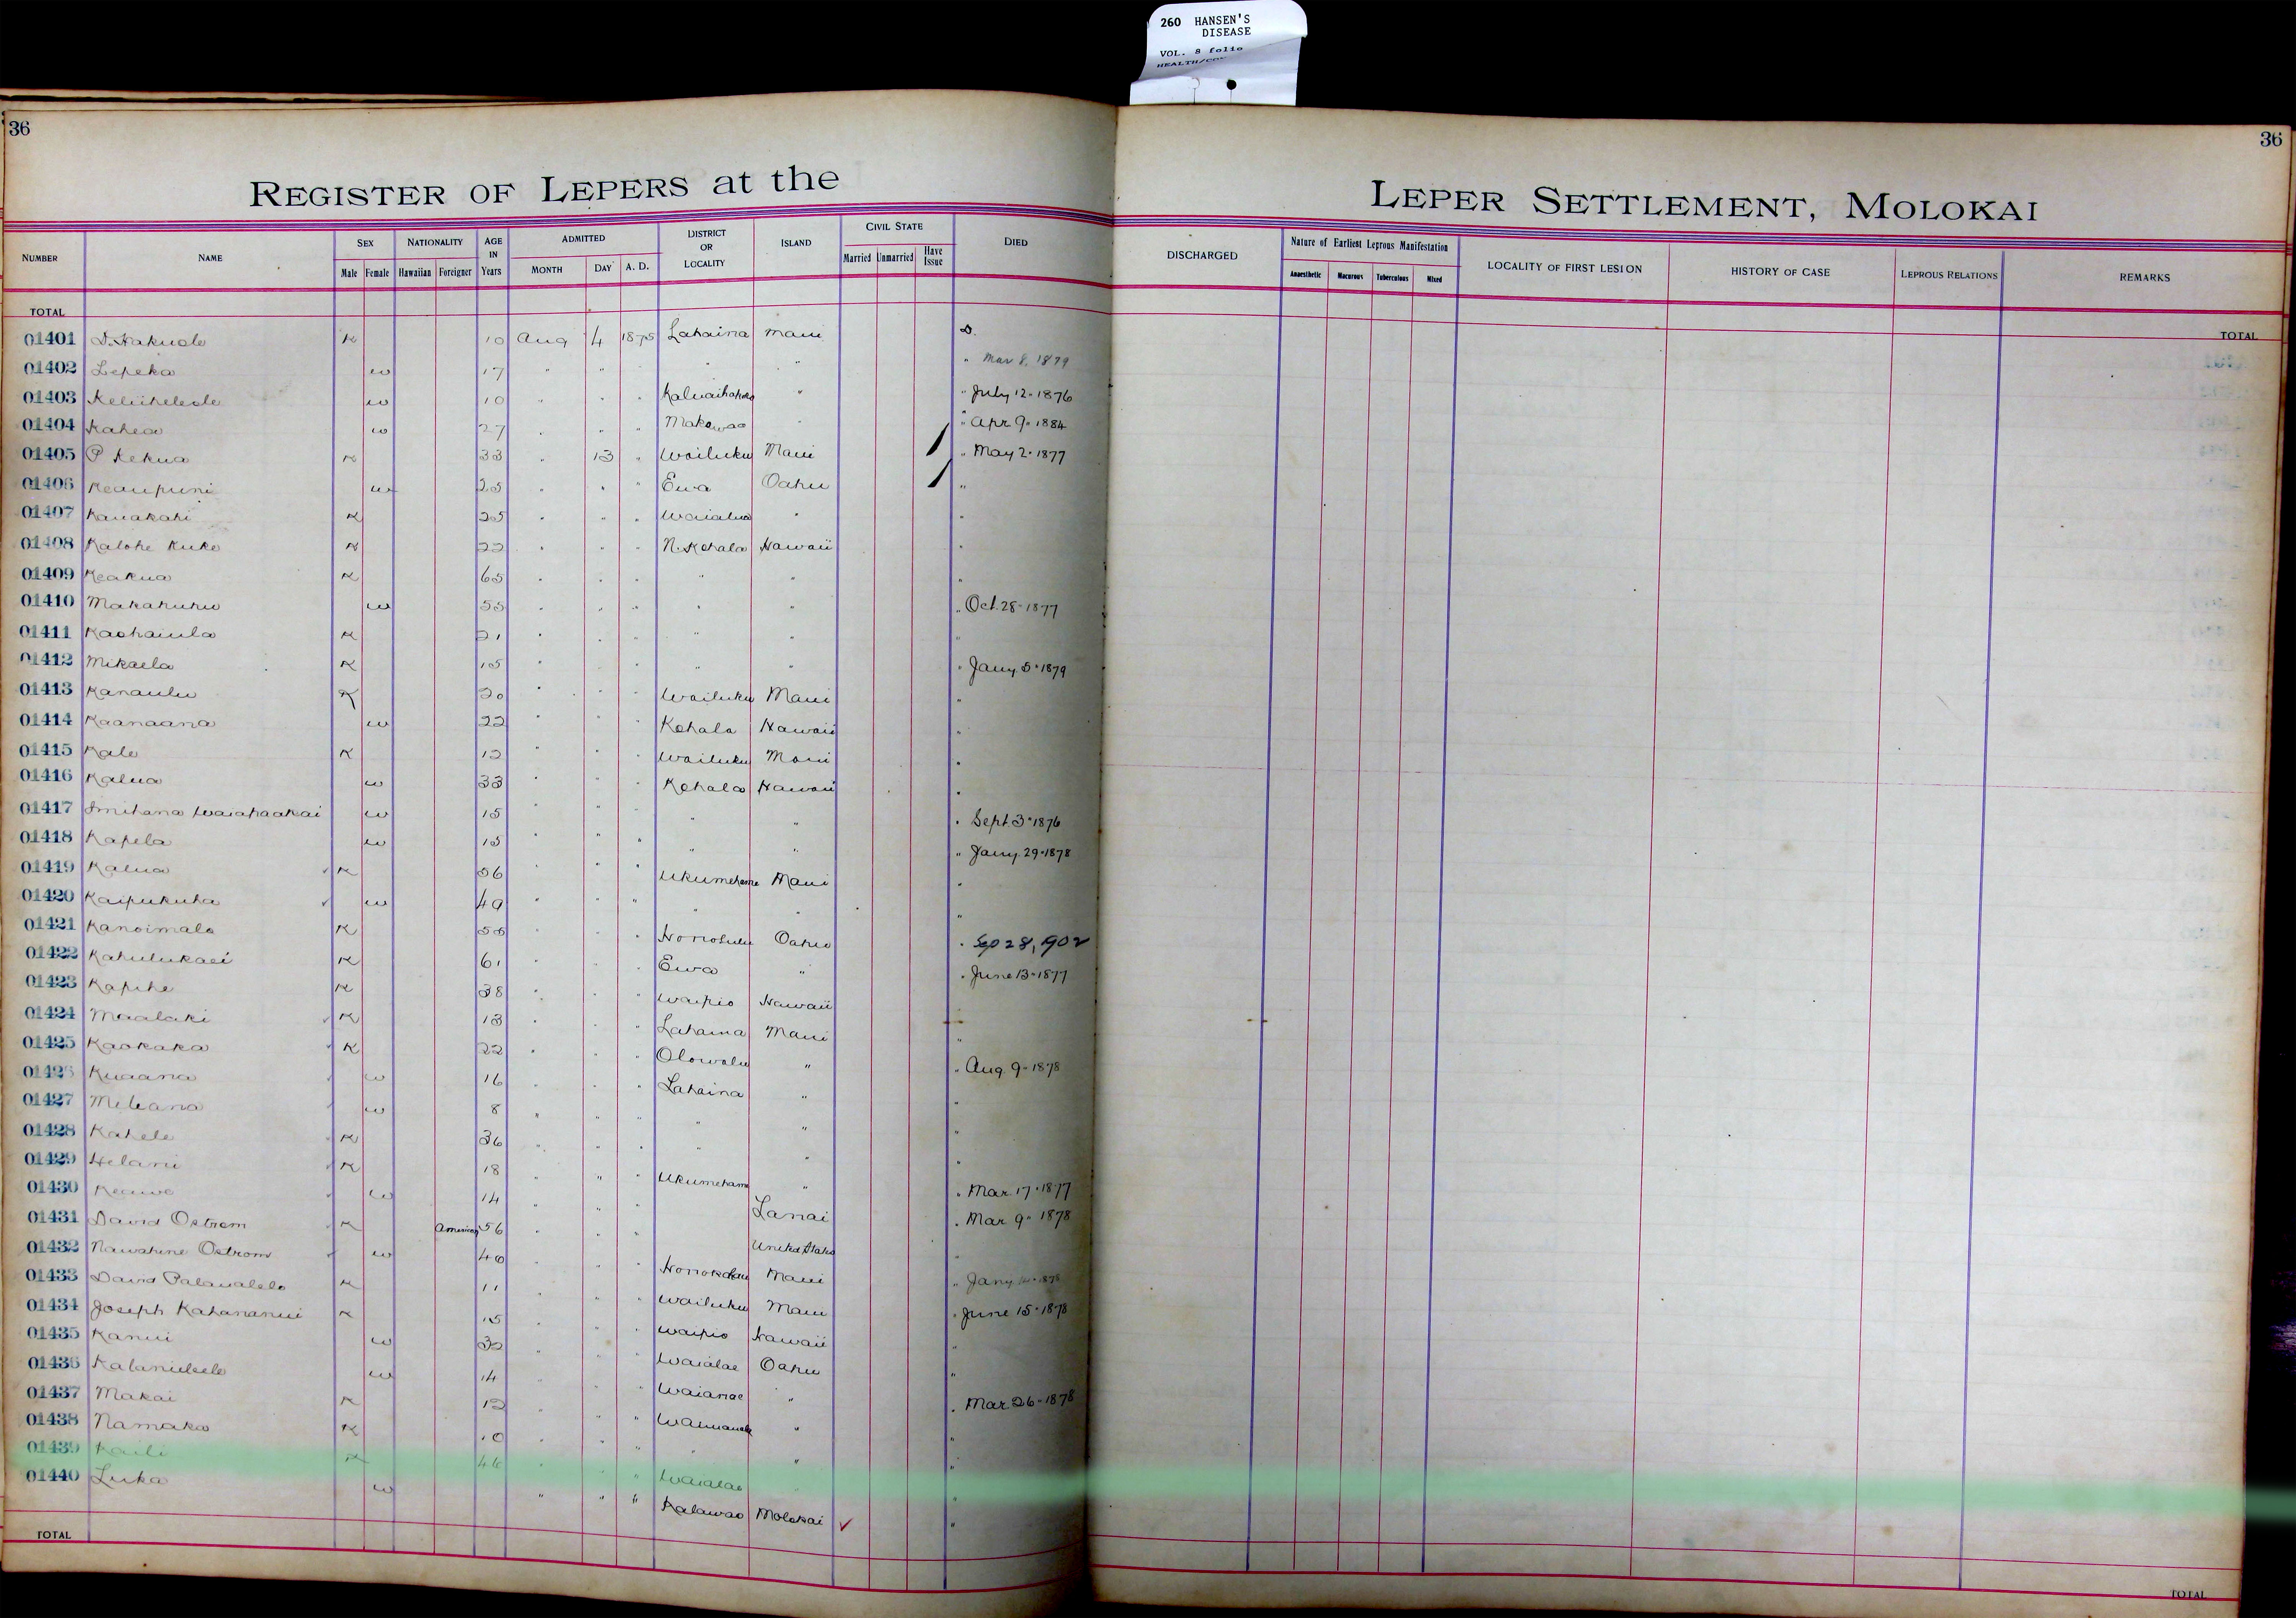 260 HANSEN'S
DISEASE
VOL. 8 folio
36
36
REGISTER OF LEPERS at the LEPER SETTLEMENT, MOLOKAI
NUMBER NAME SEX Male Female NATIONALITY Hawaiian Foreigner AGE IN Years ADMITTED MONTH DAY A. D. DISTRICT OR LOCALITY ISLAND CIVIL STATE Married Unmarried Have Issue DIED DISCHARGED Nature of Earliest Leprous Manifestation Anaesthetic Macurous Tuberculous Mixed LOCALITY OF FIRST LESION HISTORY OF CASE LEPROUS RELATIONS REMARKS
TOTAL TOTAL
01401 K 10 Aug 4 1875 Lahaina Maui D.
01402 Lepeka w 17 " " " " " Mar 8, 1879
01403 w 10 " " " " " July 12-1876
01404 Kahea w 27 " " " Makawao " " Apr 9-1884
01405 P Kekua K 33 " 13 " Wailuku Maui " May 2-1877
01406 Keaupuni w 25 " " " Ewa Oahu "
01407 Kauakahi K 25 " " " Waialua " "
01408 Kalohe Kuke K 22 " " " N. Kohala Hawaii "
01409 Keakua K 65 " " " " " "
01410 Makahuhu w 55 " " " " " " Oct. 28-1877
01411 Kaohaiula K 21 " " " " " "
01412 Mikaela K 15 " " " " " " Jany 5-1879
01413 Kanaulu K 20 " " " Wailuku Maui "
01414 Kaanaana w 22 " " " Kohala Hawaii "
01415 Kale K 12 " " " Wailuku Maui "
01416 Kalua w 33 " " " Kohala Hawaii "
01417 w 15 " " " " " " Sept. 3-1876
01418 Kapela w 15 " " " " " " Jany. 29-1878
01419 Kalua K 56 " " " Ukumehame Maui "
01420 Kaipukuha w 49 " " " " " "
01421 Kanoimalo K " " " Honolulu Oahu " Sep 28, 1902
01422 Kahulukaei K 61 " " " Ewa " " June 13-1877
01423 Kapihe K 38 " " " Waipio Hawaii
01424 Maalaki K 13 " " " Lahaina Maui "
01425 Kaokaka K 22 " " " Olowalu " " Aug. 9-1878
01426 Kuaana w 16 " " " Lahaina " "
01427 Meleana w 8 " " " " " "
01428 Kahele K 36 " " " " " "
01429 Helani K 18 " " " Ukumehame " " Mar. 17-1877
01430 Keawe w 14 " " " Lanai " Mar. 9-1878
01431 David Ostrom K American 56 " " " United States "
01432 Nawahine Ostrom w " " " Honokohau Maui " Jany
01433 David Palaualelo K 11 " " " Wailuku Maui " June 15-1878
01434 Joseph Kahananui K 15 " " " Waipio Hawaii "
01435 Kanui w 32 " " " Waialae Oahu "
01436 w 14 " " " Waianae " " Mar. 26-1878
01437 Makai K 12 " " " " "
01438 Namaka K 10 " " " " " "
01439 Kaili K 46 " " " Waialae "
01440 Luka w " " " Kalawao Molokai ✓ "
TOTAL TOTAL